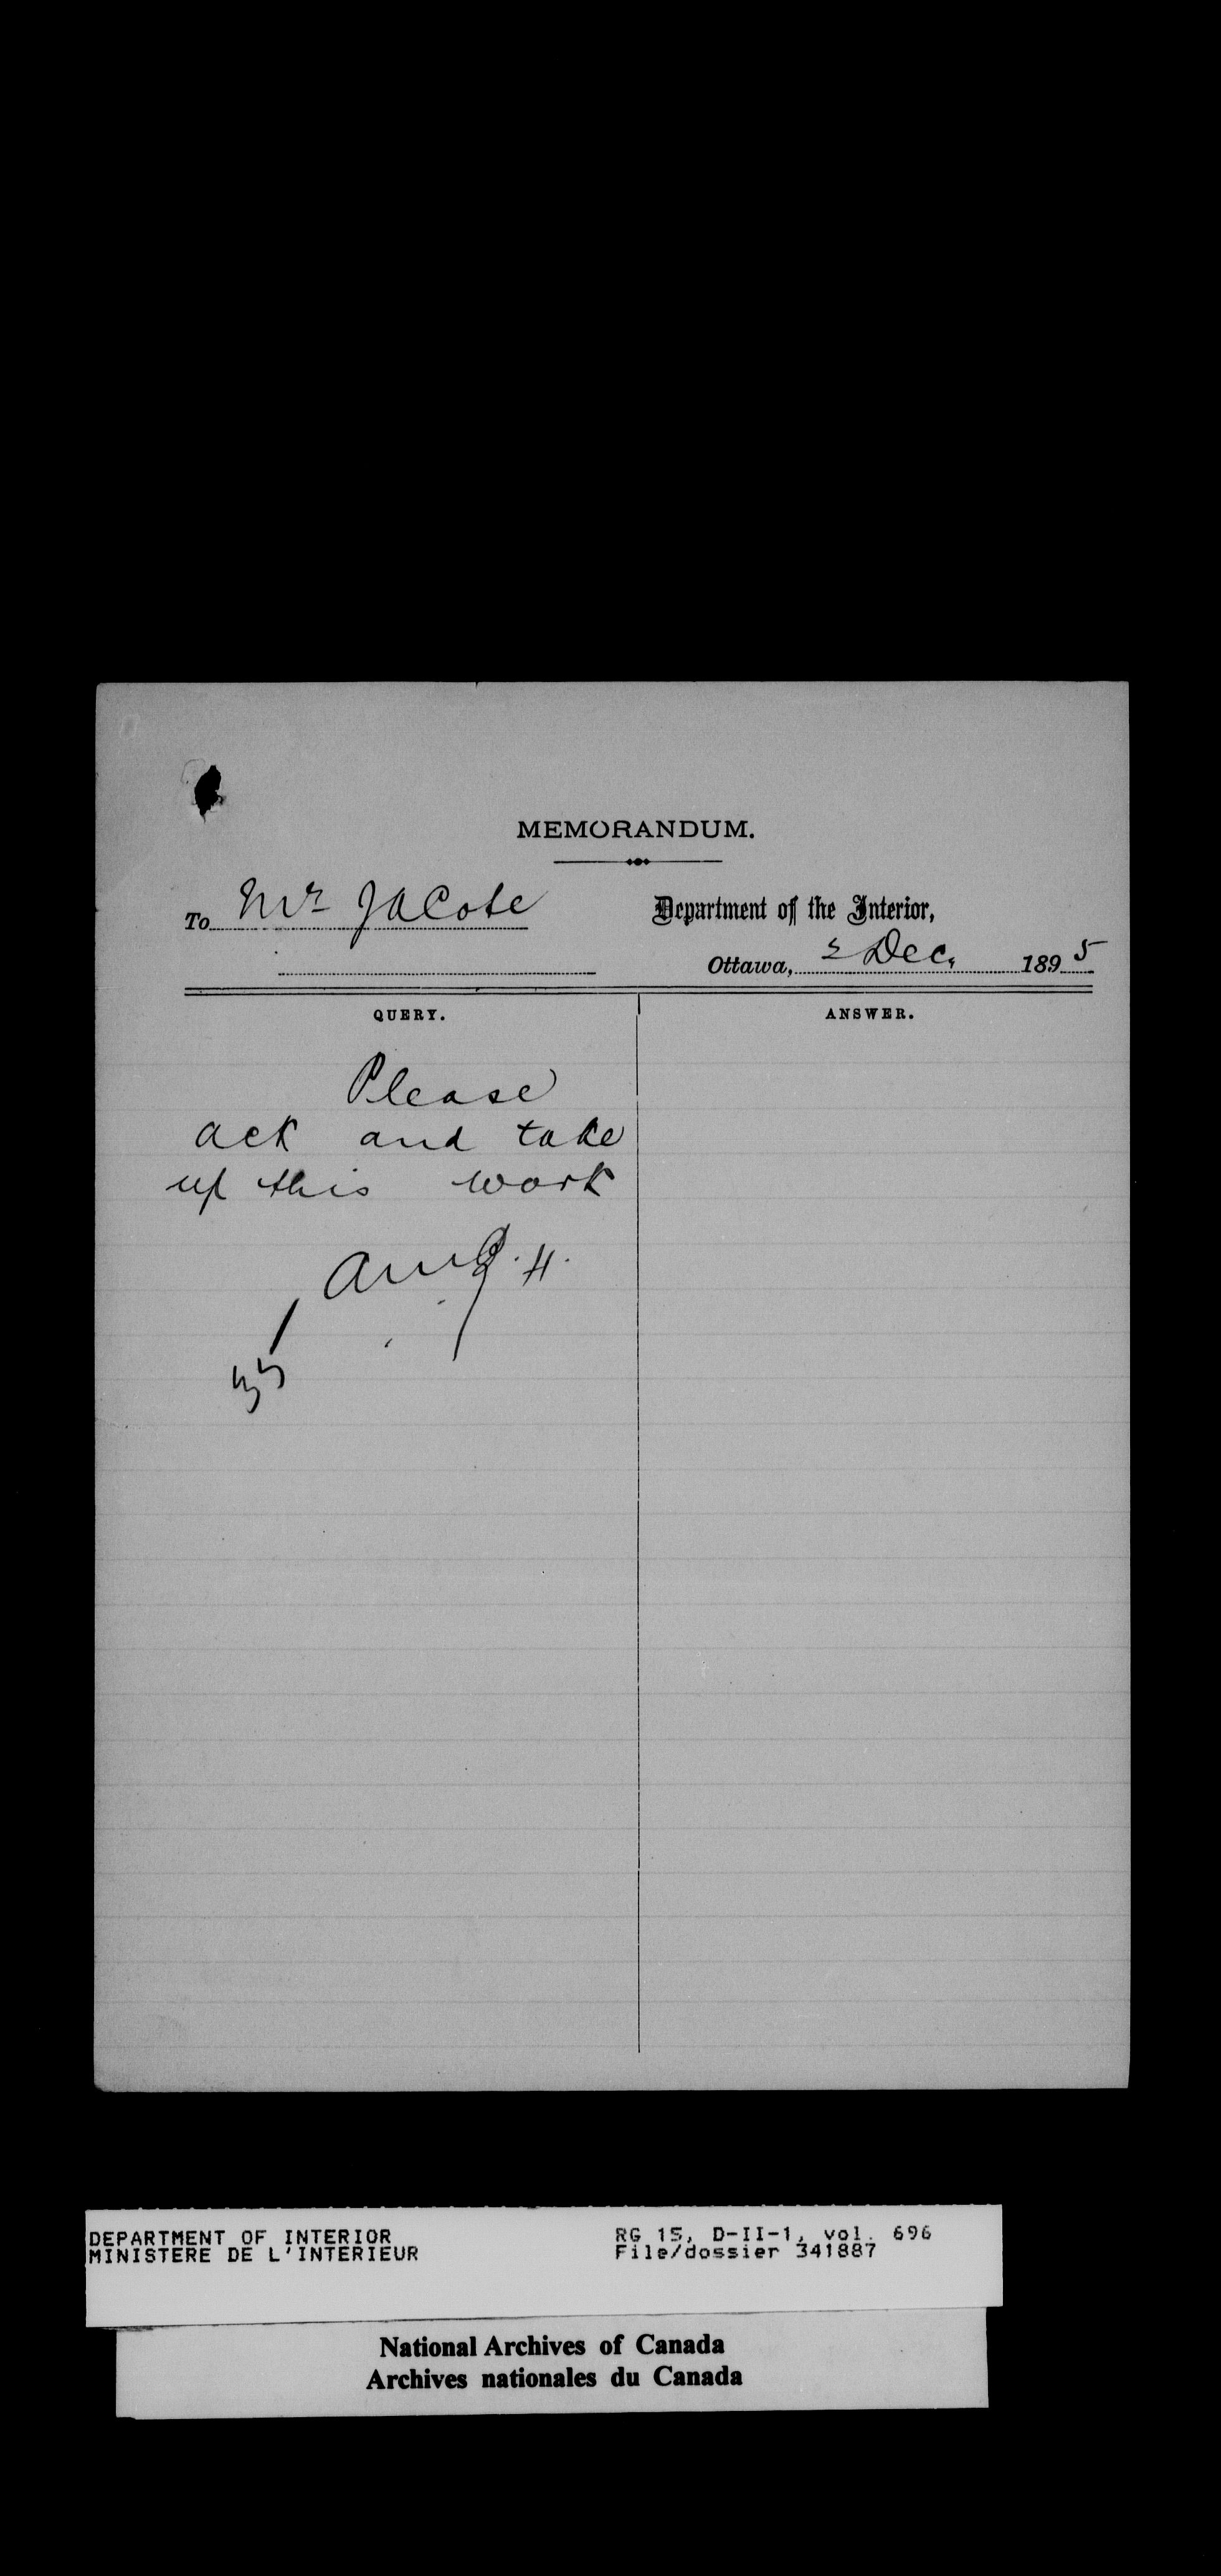 MEMORANDUM.
To Mr J A Cote
Department of the Interior,
Ottawa, 2 Dec. 1895
QUERY.
ANSWER.
Please
ack and take
up this work
DEPARTMENT OF INTERIOR
MINISTERE DE L'INTERIEUR
RG 15, D-II-1, vol. 696
File/dossier 341887
National Archives of Canada
Archives nationales du Canada